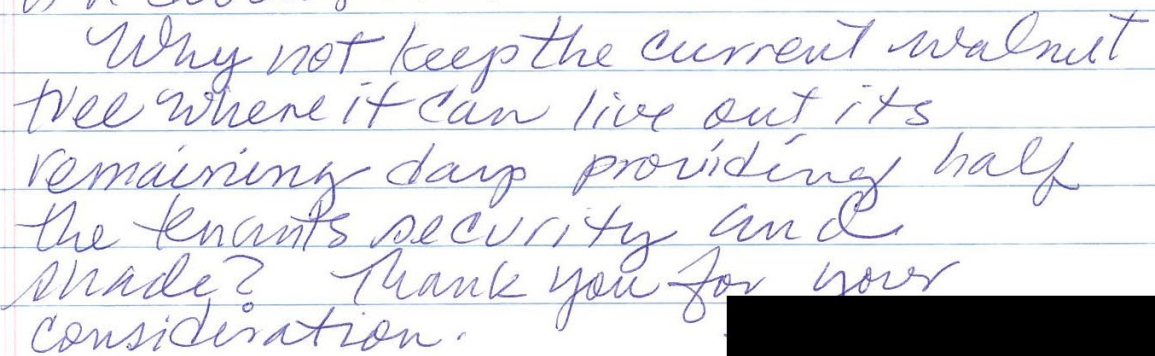 Why not keep the current walnut
tree where it can live out its
remaining days providing half
the tenants security and
shade? Thank you for your
consideration.